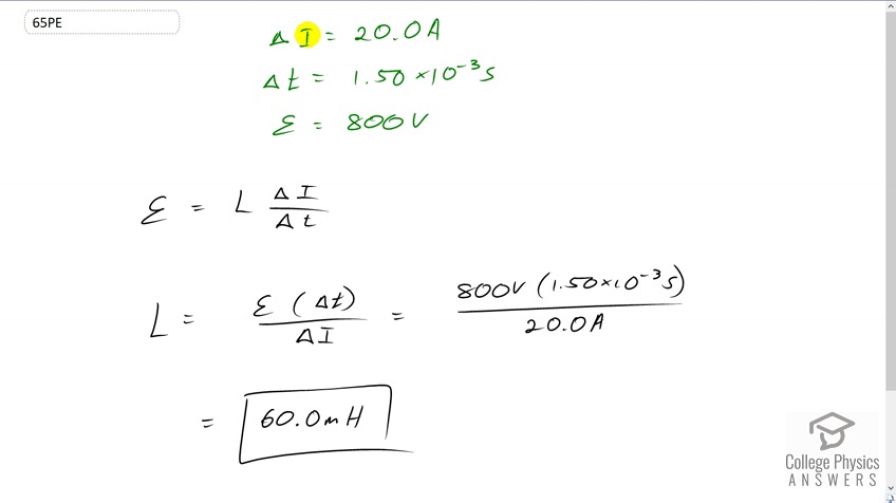 65PE
Δ I = 20.0A
Δt = 1.50×10⁻³s
ε = 800V
ε = L ΔI/Δt
L = ε(Δt)/ΔI = 800V(1.50×10⁻³s)/20.0A
= 60.0mH
College Physics
ANSWERS